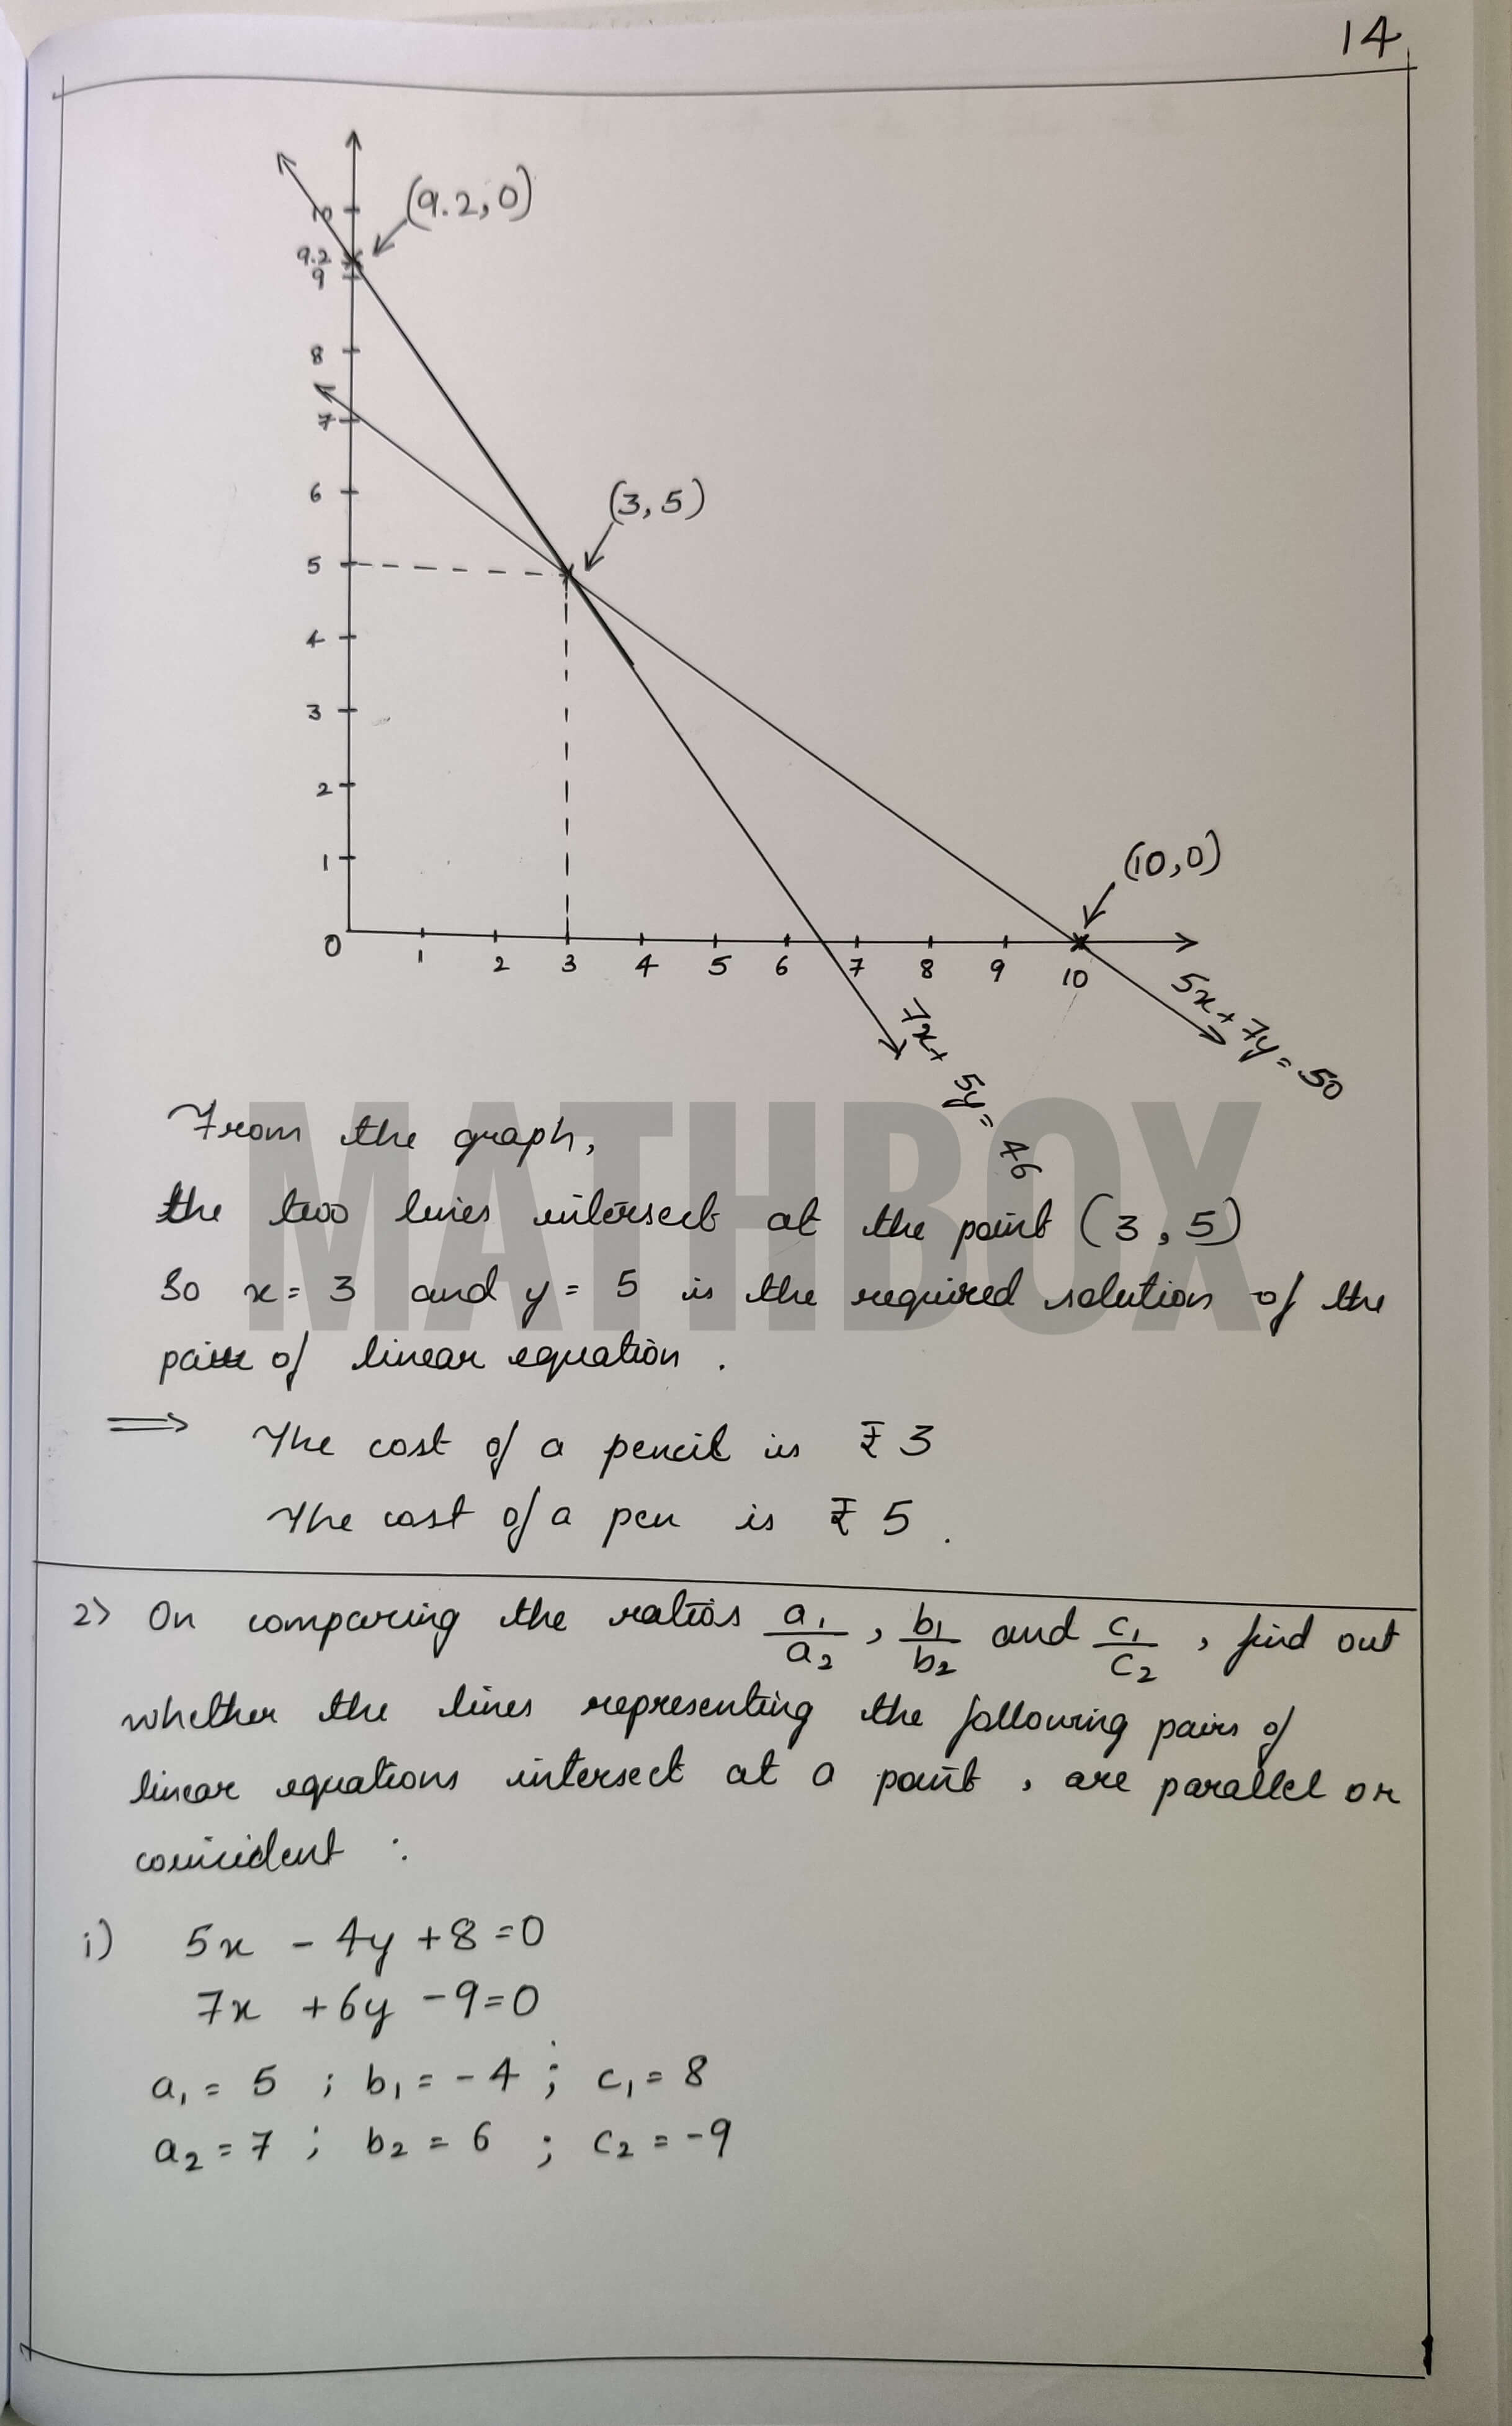 14
(9.2, 0)
10
9.2
9
8
7
(3, 5)
6
5
4
3
2
1
(10, 0)
0 1 2 3 4 5 6 7 8 9 10
5x + 7y = 50
7x + 5y = 46
MATHBOX
From the graph,
the two lines intersect at the point (3, 5)
So x = 3 and y = 5 is the required solution of the
pair of linear equation .
⟹ The cost of a pencil is ₹ 3
The cost of a pen is ₹ 5 .
2) On comparing the ratios a1/a2 , b1/b2 and c1/c2 , find out
whether the lines representing the following pairs of
linear equations intersect at a point , are parallel or
coincident :
i) 5x - 4y + 8 = 0
7x + 6y - 9 = 0
a1 = 5 ; b1 = -4 ; c1 = 8
a2 = 7 ; b2 = 6 ; c2 = -9